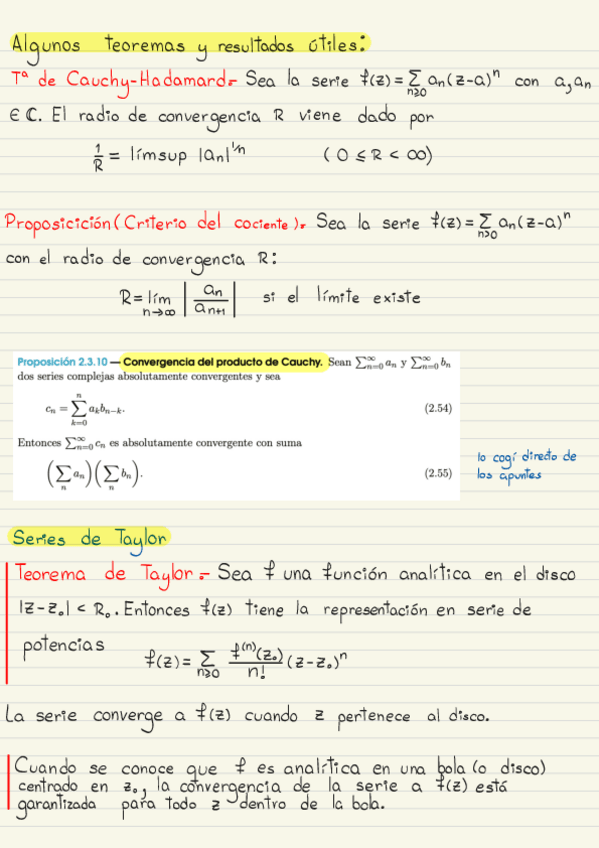 Algunos teoremas y resultados útiles:
Tª de Cauchy-Hadamard.- Sea la serie f(z) = ∑_{n≥0} aₙ(z-a)ⁿ con a, aₙ
∈ ℂ. El radio de convergencia R viene dado por
1/R = límsup |aₙ|^{1/n} (0 ≤ R < ∞)
Proposicición (Criterio del cociente).- Sea la serie f(z) = ∑_{n≥0} aₙ(z-a)ⁿ
con el radio de convergencia R:
R = lím_{n→∞} |aₙ/aₙ₊₁| si el límite existe
Proposición 2.3.10 — Convergencia del producto de Cauchy. Sean ∑_{n=0}^{∞} aₙ y ∑_{n=0}^{∞} bₙ
dos series complejas absolutamente convergentes y sea
cₙ = ∑_{k=0}^{n} aₖbₙ₋ₖ. (2.54)
Entonces ∑_{n=0}^{∞} cₙ es absolutamente convergente con suma
(∑_n aₙ)(∑_n bₙ). (2.55)
lo cogí directo de
los apuntes
Series de Taylor
Teorema de Taylor.- Sea f una función analítica en el disco
|z-z₀| < R₀. Entonces f(z) tiene la representación en serie de
potencias
f(z) = ∑_{n≥0} f⁽ⁿ⁾(z₀)/n! (z-z₀)ⁿ
La serie converge a f(z) cuando z pertenece al disco.
Cuando se conoce que f es analítica en una bola (o disco)
centrado en z₀, la convergencia de la serie a f(z) está
garantizada para todo z dentro de la bola.